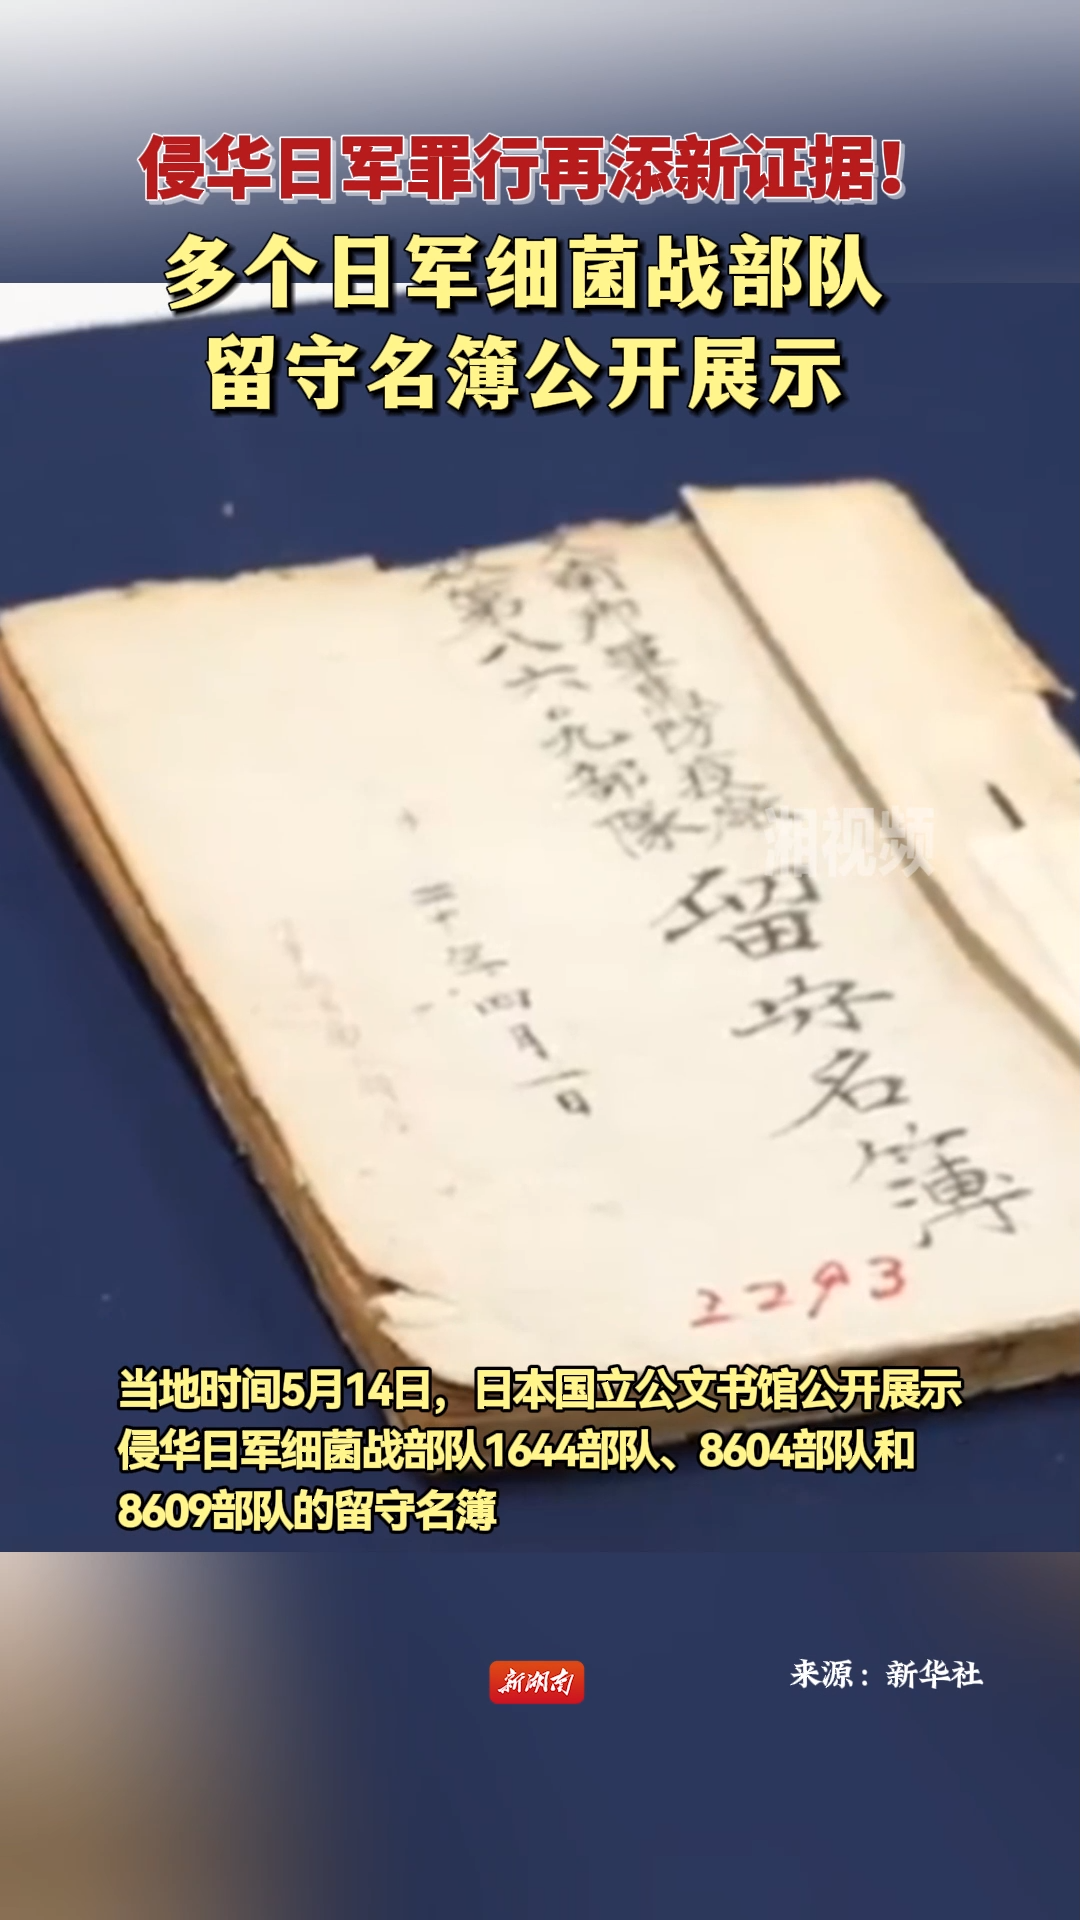 侵华日军罪行再添新证据！
多个日军细菌战部队
留守名簿公开展示
第八六〇九部隊
留守名簿
二十年四月一日
2293
湘视频
当地时间5月14日，日本国立公文书馆公开展示
侵华日军细菌战部队1644部队、8604部队和
8609部队的留守名簿
新湖南
来源：新华社